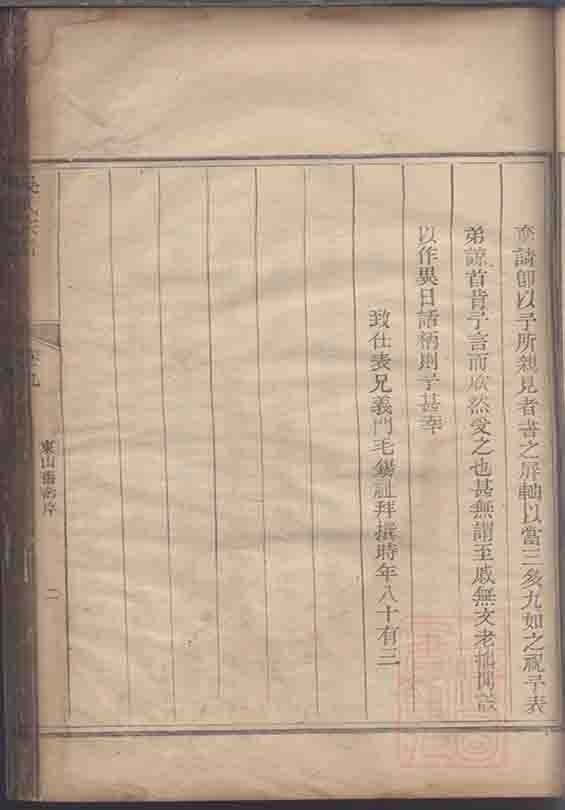 請即以予所親見者書之屏軸以當三多九如之祝予表
弟諒首肯予言而欣然受之也甚無謂至戚無文老拙
以作異日話柄則予甚幸
致仕表兄義門毛錫祖拜撰時年八十有三
卷九
東山
二